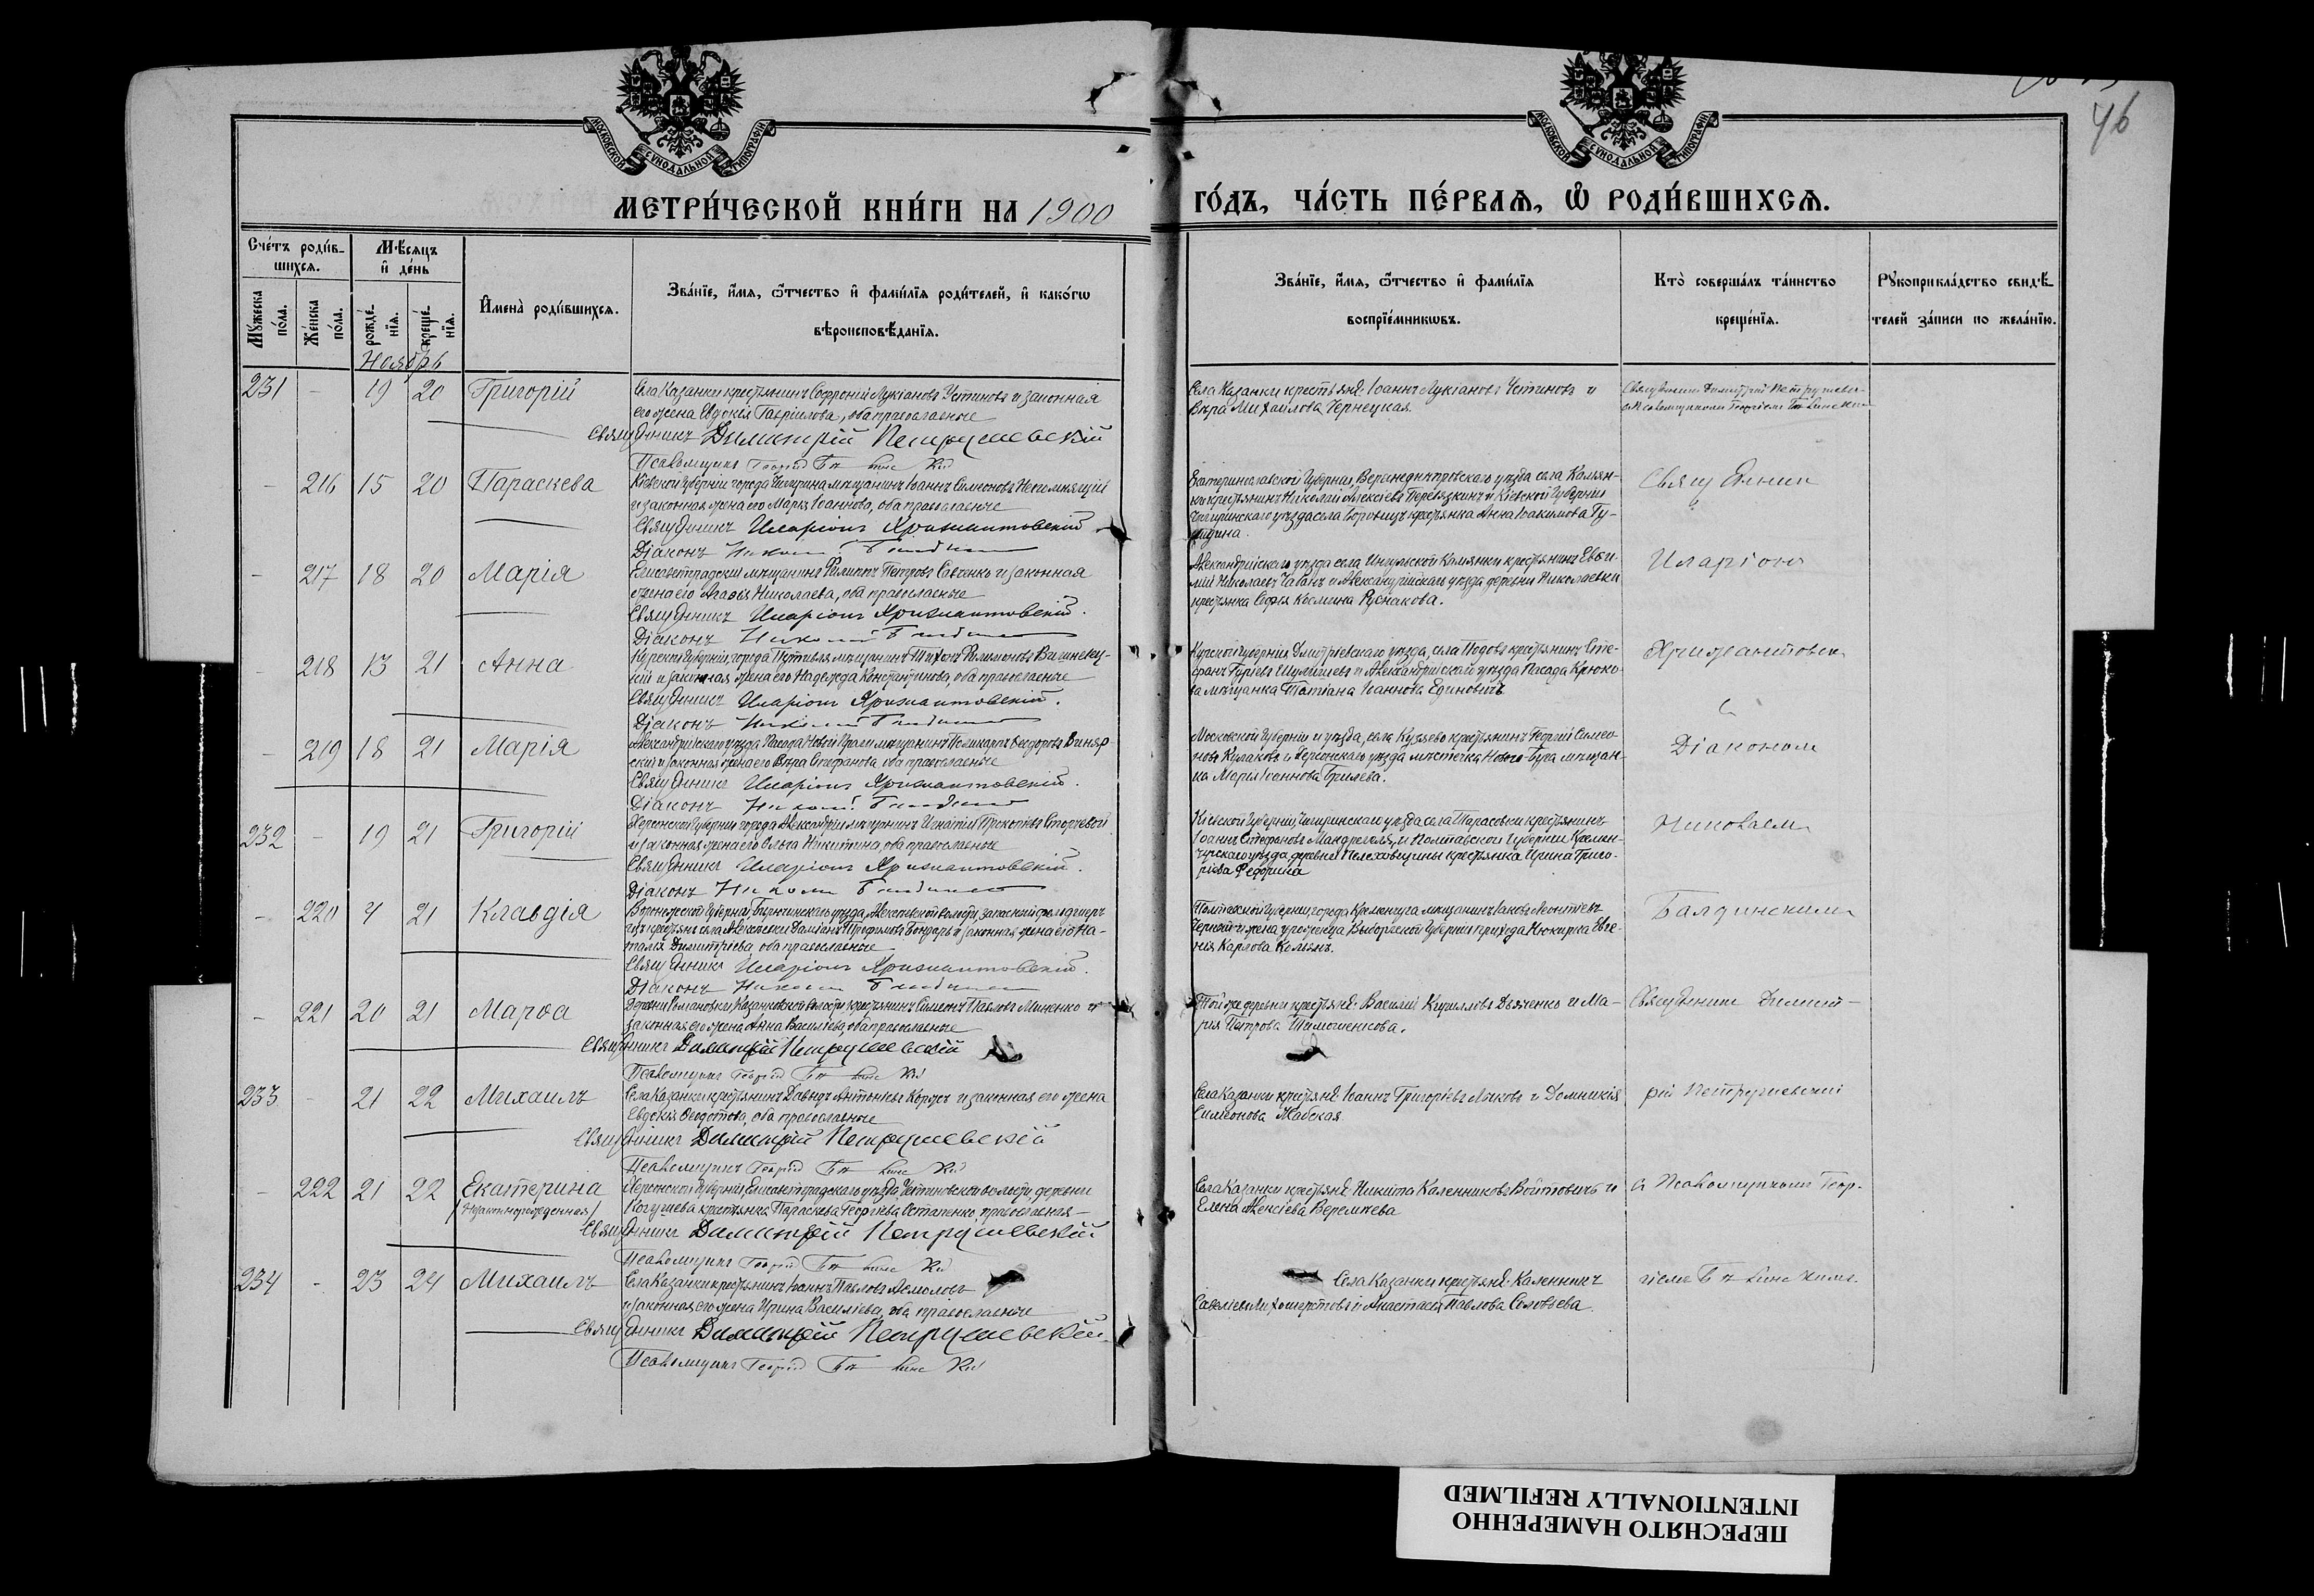 46
МОСКОВСКОЙ СѴНОДАЛЬНОЙ ТИПОГРАФІИ
МОСКОВСКОЙ СѴНОДАЛЬНОЙ ТИПОГРАФІИ
МЕТРИ́ЧЕСКОЙ КНИ́ГИ НА 1900
ГО́ДЪ, ЧА́СТЬ ПЕ́РВАѦ, Ѿ РОДИ́ВШИХСѦ.
Сче́тъ роди́в-
шихсѧ.
Мѣ́сѧцъ
и҆ де́нь
Мꙋ́жеска
по́ла.
Же́нска
по́ла.
рожде́-
нїѧ.
креще́-
нїѧ.
И҆мена̀ роди́вшихсѧ.
Зва́нїе, и҆́мѧ, ѻ҆́тчество и҆ фами́лїѧ роди́телей, и҆ како́гѡ
вѣроисповѣ́данїѧ.
Зва́нїе, и҆́мѧ, ѻ҆́тчество и҆ фами́лїѧ
воспрїе́мникѡвъ.
Кто̀ соверша́лъ та́инство
креще́нїѧ.
Рꙋкоприкла́дство свидѣ́-
телей за́писи по жела́нїю.
Ноябрь
231 - 19 20 Григорій
Села Казанки крестьянинъ Софроній Лукіановъ Устиновъ и законная
его жена Евдокія Гавріилова, оба православные
Священникъ Димитрій Петрушевскій
Псаломщикъ Георгій
Села Казанки крестьяне: Іоаннъ Лукіановъ Устиновъ и
Вѣра Михаилова Чернецкая.
Священникъ Димитрій Петрушевскій
съ Псаломщикомъ Георгіемъ
- 216 15 20 Параскева
Кіевской губерніи города Чигирина мѣщанинъ Іоаннъ Симеоновъ Непомнящій
и законная жена его Марія Іоаннова, оба православные
Священникъ Иларіонъ Хризантовскій
Діаконъ Николай
Екатеринославской Губерніи, Верхнеднѣпровскаго уѣзда села Камян-
ки крестьянинъ Николай Алексіевъ Перевязкинъ и Кіевской Губерніи
Чигиринскаго уѣзда села Боровицъ крестьянка Анна Іоакимова
Священник
- 217 18 20 Марія
Елисаветградскій мѣщанинъ Филиппъ Петровъ Савченко и законная
жена его Агафія Николаева, оба православные
Священникъ Иларіонъ Хризантовскій.
Діаконъ Николай
Александрійскаго уѣзда села Ингульской Камянки крестьянинъ Евѳи-
мій Николаевъ Чабанъ и Александрійскаго уѣзда деревни Николаевки
крестьянка Софія Космина Руснакова.
Иларіонъ
- 218 13 21 Анна
Курской Губерніи, города Путивля мѣщанинъ Тихонъ Филимоновъ Вишневс-
кій и законная жена его Надежда Константинова, оба православные
Священникъ Иларіонъ Хризантовскій.
Діаконъ Николай
Курской губерніи Дмитріевскаго уѣзда, села Подовъ крестьянинъ Сте-
фанъ Гуріевъ и Александрійскаго уѣзда Посада Крюко-
ва мѣщанка Татіана Іоаннова Единовичъ
Хризантовск
съ
- 219 18 21 Марія
Александрійскаго уѣзда Посада Новой Праги мѣщанинъ Поликарпъ Ѳеодоровъ Виняр-
скій и законная жена его Вѣра Стефанова, оба православные
Священникъ Иларіонъ Хризантовскій.
Діаконъ Николай
Московской Губерніи и уѣзда, села Кузяево крестьянинъ Георгій Симео-
новъ Кулаковъ и Херсонскаго уѣзда мѣстечка Новаго-Буга мѣщан-
ка Марія Іоаннова Брилева.
Діакономъ
232 - 19 21 Григорій
Херсонской Губерніи города Александріи мѣщанинъ Игнатій Прокопіевъ Сторчевой
и законная жена его Ольга Никитина, оба православные
Священникъ Иларіонъ Хризантовскій.
Діаконъ Николай
Кіевской Губерніи, Чигиринскаго уѣзда села Тарасовки крестьянинъ
Іоаннъ Стефановъ и Полтавской Губерніи Кремен-
чугскаго уѣзда деревни Пелеховщины крестьянка Ирина Григо-
ріева Федорина
Николаемъ
- 220 4 21 Клавдія
Воронежской Губерніи, Бирюченскаго уѣзда, Алексѣевской волости, запасный фельдшеръ
изъ крестьянъ села Алексѣевки Даміанъ Трофимовъ Бондарь и законная жена его На-
талія Димитріева, оба православные
Священникъ Иларіонъ Хризантовскій.
Діаконъ Николай
Полтавской Губерніи, города Кременчуга мѣщанинъ Іаковъ Леонтіевъ
Черный и жена уроженца Выборгской Губерніи прихода Нюкирка Евге-
нія Карлова
Балдинскимъ
- 221 20 21 Марѳа
Деревни Романовки, Казанковской волости крестьянинъ Симеонъ Павловъ Миненко и
законная его жена Анна Василіева, оба православные
Священникъ Димитрій Петрушевскій
Псаломщикъ Георгій
Той же деревни крестьяне: Василій Кирилловъ Дьяченко и Ма-
рія Петрова Тимошенкова.
Священникъ Димит-
233 - 21 22 Михаилъ
Села Казанки крестьянинъ Давидъ Антоніевъ Корусъ и законная его жена
Евдокія Ѳеодотова, оба православные
Священникъ Димитрій Петрушевскій
Псаломщикъ Георгій
Села Казанки крестьяне: Іоаннъ Григоріевъ Ляховъ и Домникія
Симеонова
рій Петрушевскій
- 222 21 22 Екатерина
/Незаконнорожденная/
Херсонской Губерніи, Елисаветградскаго уѣзда, Устиновской волости, деревни
крестьянка Параскева Георгіева Остапенко, православная
Священникъ Димитрій Петрушевскій
Псаломщикъ Георгій
Села Казанки крестьяне: Никита Каленниковъ Войтовичъ и
Елена Алексіева Веремѣева
съ Псаломщикомъ Геор-
234 - 23 24 Михаилъ
Села Казанки крестьянинъ Іоаннъ Павловъ
и законная его жена Ирина Василіева, оба православные
Священникъ Димитрій Петрушевскій
Псаломщикъ Георгій
Села Казанки крестьяне: Каленникъ
Савеліевъ и Анастасія Павлова Соловьева.
гіемъ
ПЕРЕСНЯТО НАМЕРЕННО
INTENTIONALLY REFILMED